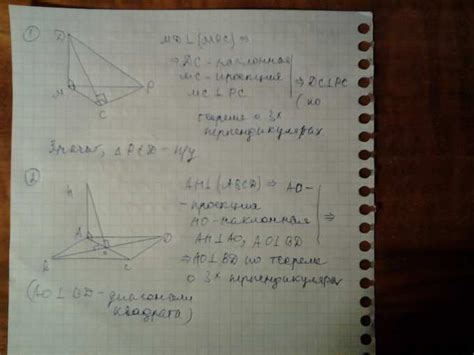 ①
D
M
P
C
MD⊥(MPC) ⇒
⇒ DC - наклонная
MC - проекция
MC⊥PC
⇒ DC⊥PC
(по
теореме о 3х
перпендикулярах
Значит, △PCD - п/у
②
A
D
B
C
AH⊥(ABCD) ⇒ AO -
- проекция
HO - наклонная
AH⊥AO, AO⊥BD
⇒
⇒ HO⊥BD по теореме
о 3х перпендикулярах
(AO⊥BD - диагонали
квадрата)